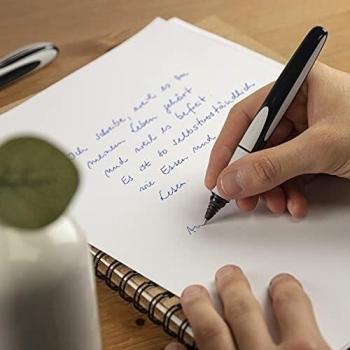 Ich schreibe, weil es zu
meinem Leben gehört
und weil es befreit
Es ist so selbstverständlich
wie Essen und
Lesen